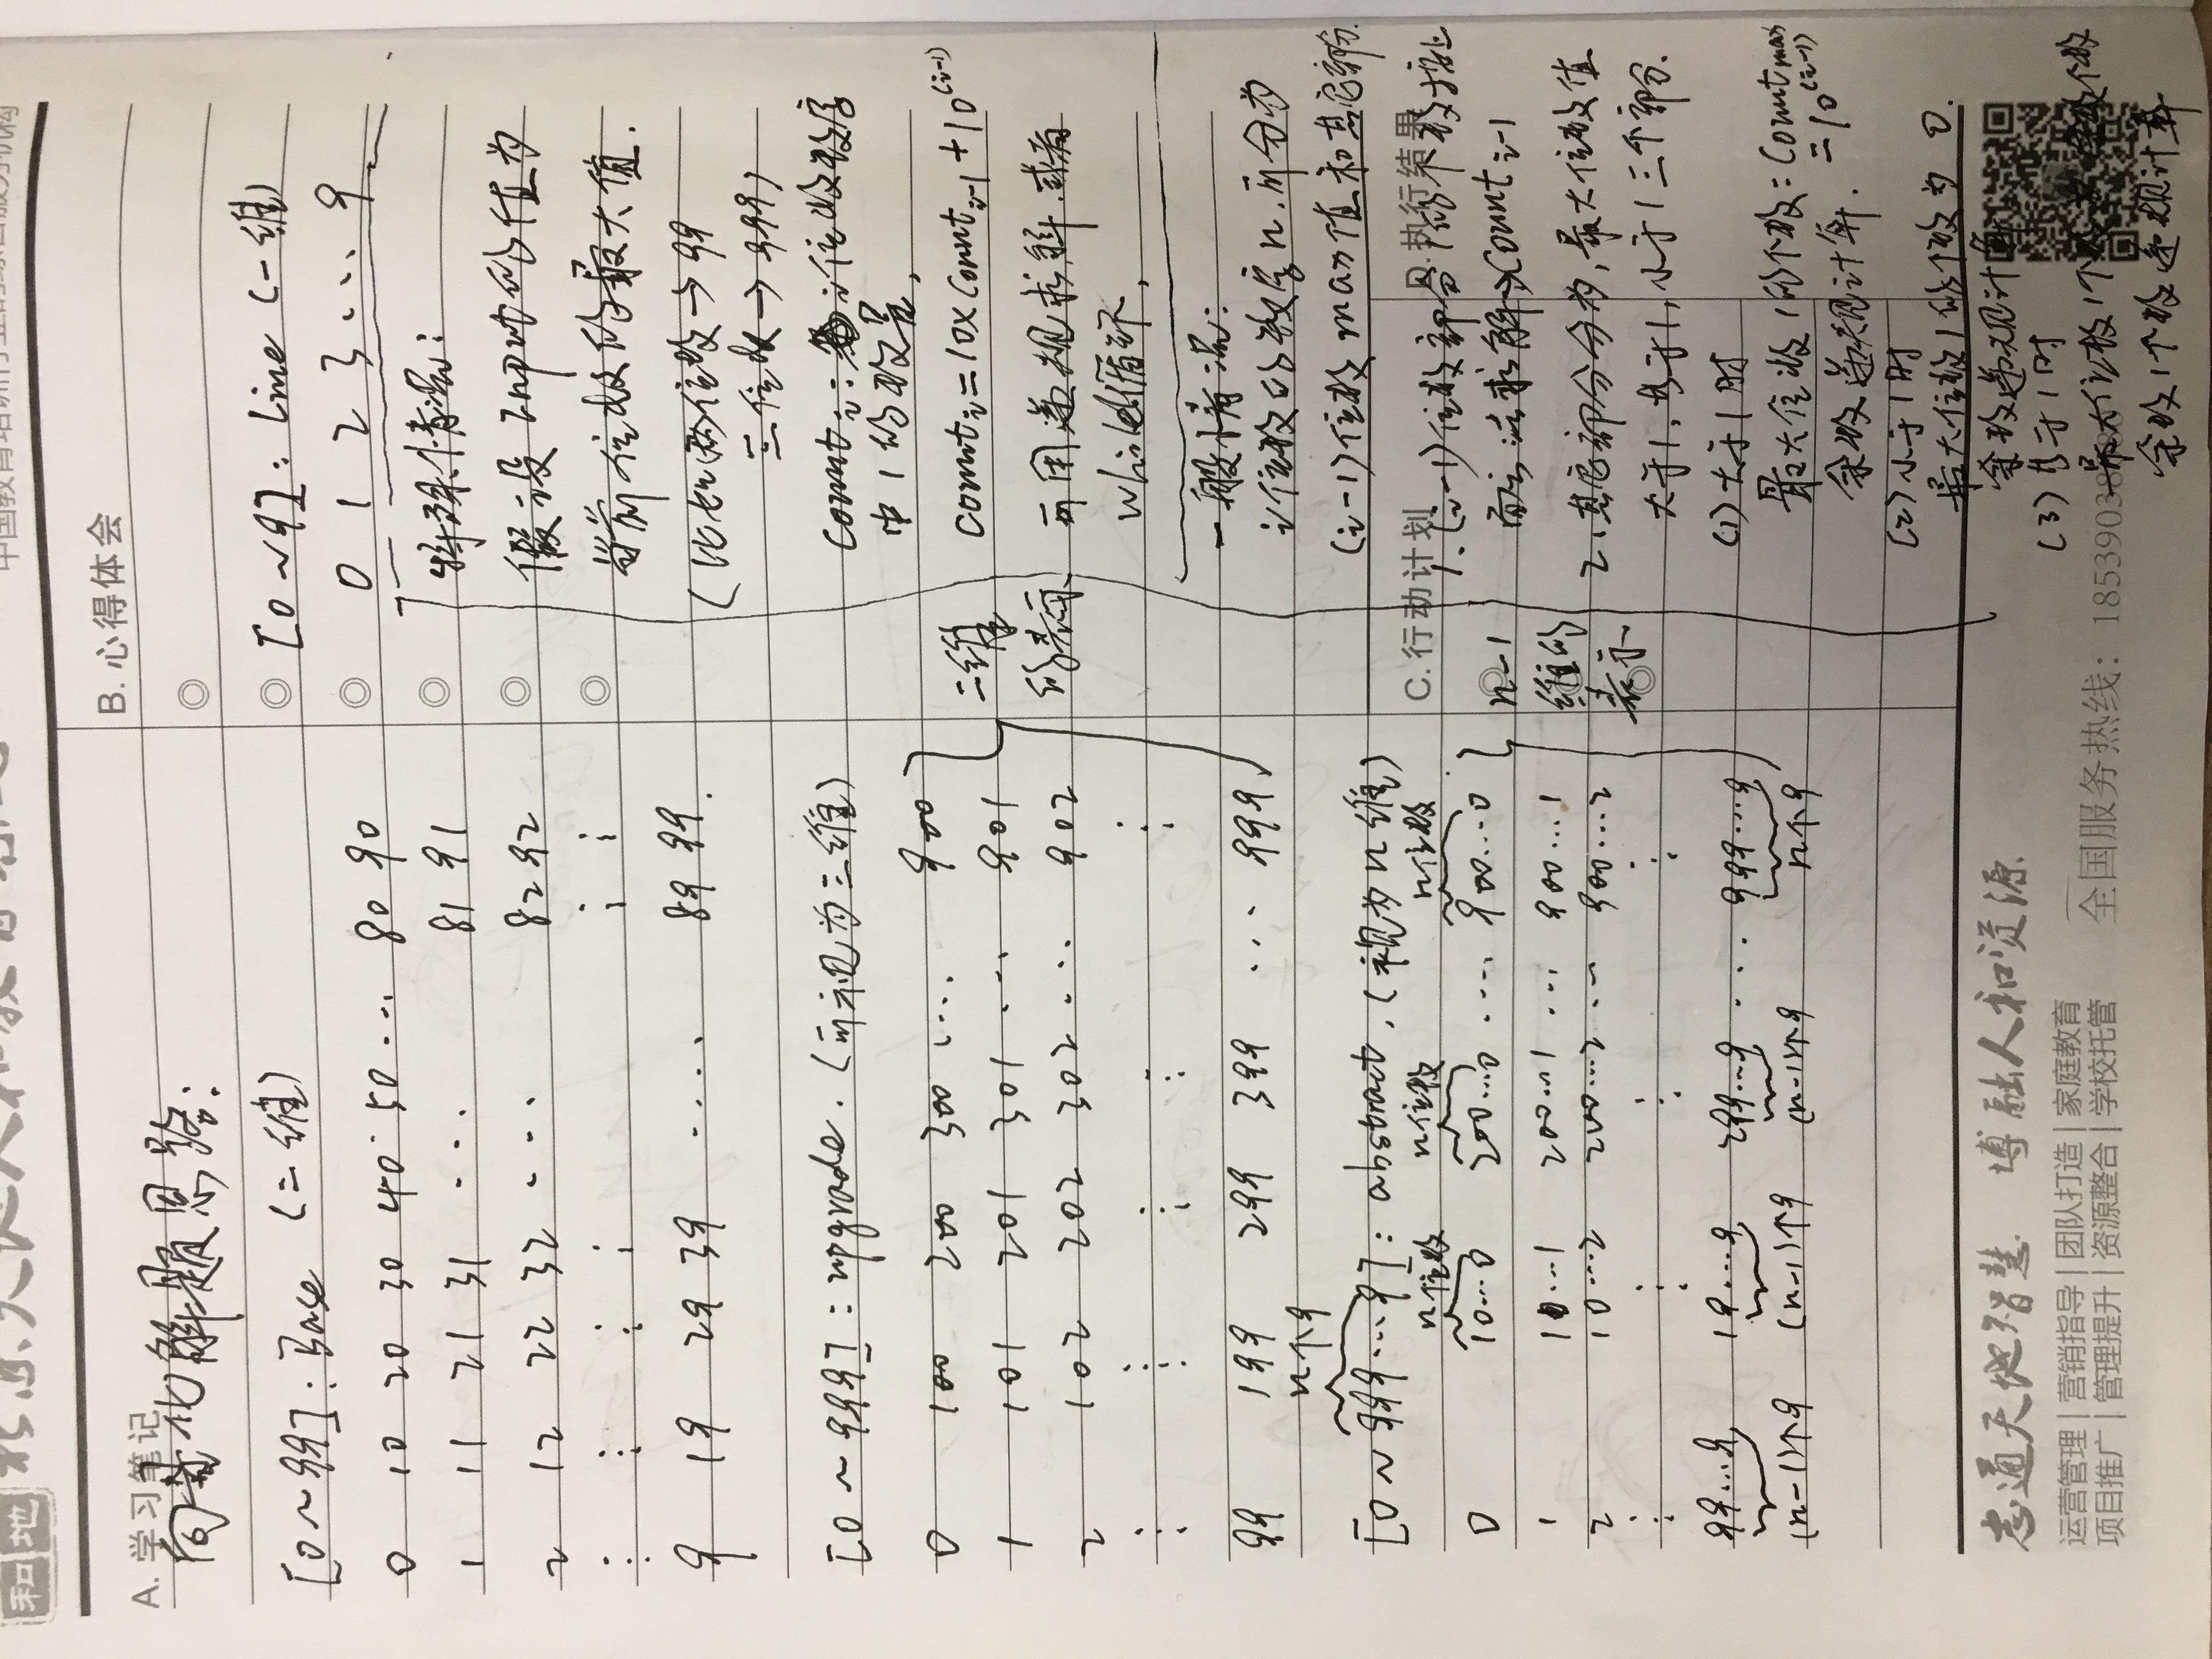 和地
北京天地人和教育
中国教育培训行业的综合服务机构
A. 学习笔记
向量化解题思路:
[0 ~ 99]: Base (二维)
0 10 20 30 40 50 ... 80 90
1 11 21 31 ... 81 91
2 12 22 32 ... 82 92
⋮ ⋮ ⋮ ⋮ ⋮ ⋮
9 19 29 39 .... 89 99.
[0 ~ 999]: upgrade. (可视为三维)
0 100 200 300 .... 900
1 101 201 301 ... 901
2 102 202 302 ... 902
⋮ ⋮ ⋮ ⋮ ⋮
99 199 299 399 ... 999
二维
的表示
n个9
[0 ~ 999...9]: abstract. (视为n维)
n位数 n位数 n位数
0 10...0 200...0 .... 900...0
1 10...1 200...1 ... 900...1
2 10...2 200...2 ... 900...2
⋮ ⋮ ⋮ ⋮
99...9 19...9 299...9 .... 999...9
(n-1)个9 (n-1)个9 (n-1)个9 n个9
n-1
维的
表示
B. 心得体会
[0 ~ 9]: Line (一维)
0 1 2 3 ... 9
特殊情况:
假设Input的值为
当前位数的最大值.
(比如两位数→99
三位数→999)
count i: i位数数字
中1的数量,
count i = 10 x count i-1 + 10^(i-1)
可用递规求解.或者
while循环,
一般情况:
i位数的数字n.可分为
(i-1)位数max值和其它部分.
C. 行动计划
D. 执行结果
1. (i-1)位数部分1的个数按上
面方法求解→count i-1
2. 其它部分分为, 最大位数值
大于1, 等于1, 小于1三个部分.
(1) 大于1时
最大位数1的个数= count max
= 10^(i-1)
余数递规计算.
(2) 小于1时
最大位数1的个数为 0.
余数递规计算
(3) 等于1时
最大位数1个数 余数个数
余数1个数递规计算
志通天地智慧 博融人和资源
运营管理|营销指导|团队打造|家庭教育
项目推广|管理提升|资源整合|学校托管
全国服务热线: